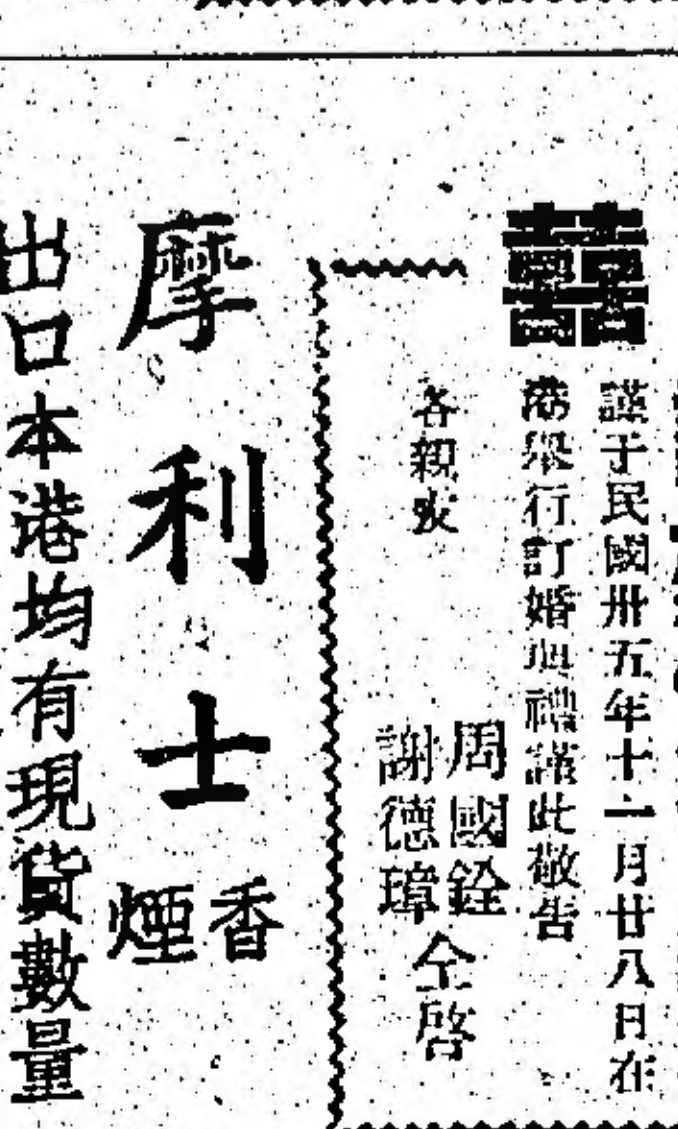 囍
謹于民國卅五年十二月廿八日在
港舉行訂婚典禮謹此敬告
各親友
周國銓
謝德瑋
仝啓
摩利士
香煙
出口本港均有現貨數量